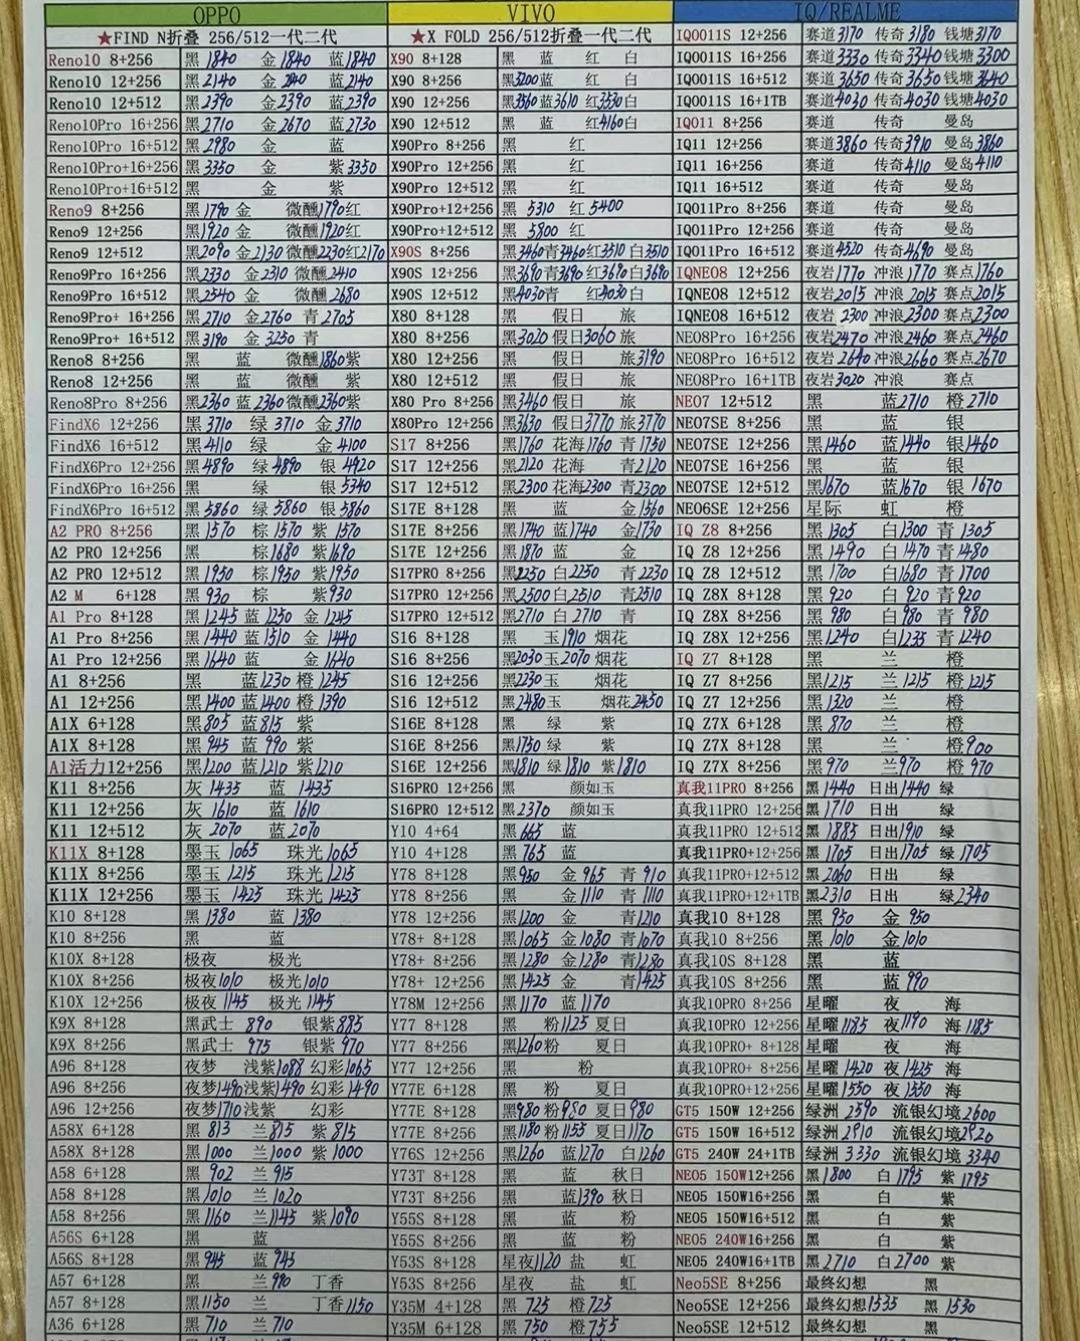 OPPO VIVO IQ/REALME
★FIND N折叠 256/512一代二代 ★X FOLD 256/512折叠一代二代 IQ0011S 12+256 赛道3170 传奇3180 钱塘3170
Reno10 8+256 黑1840 金1840 蓝1840 X90 8+128 黑 蓝 红 白 IQ0011S 16+256 赛道3330 传奇3340 钱塘3300
Reno10 12+256 黑2140 金2140 蓝2140 X90 8+256 黑3200 蓝 红 白 IQ0011S 16+512 赛道3650 传奇3650 钱塘3640
Reno10 12+512 黑2390 金2390 蓝2390 X90 12+256 黑3560 蓝3610 红3530 白 IQ0011S 16+1TB 赛道4030 传奇4030 钱塘4030
Reno10Pro 16+256 黑2710 金2670 蓝2730 X90 12+512 黑 蓝 红4160 白 IQ011 8+256 赛道 传奇 曼岛
Reno10Pro 16+512 黑2980 金 蓝 X90Pro 8+256 黑 红 IQ11 12+256 赛道3860 传奇3910 曼岛3860
Reno10Pro+16+256 黑3350 金 紫3350 X90Pro 12+256 黑 红 IQ11 16+256 赛道 传奇4110 曼岛4110
Reno10Pro+16+512 黑 金 紫 X90Pro 12+512 黑 红 IQ11 16+512 赛道 传奇 曼岛
Reno9 8+256 黑1790 金 微醺1790 红 X90Pro+12+256 黑 5310 红 5400 IQ011Pro 8+256 赛道 传奇 曼岛
Reno9 12+256 黑1920 金 微醺1920 红 X90Pro+12+512 黑 5800 红 IQ011Pro 12+256 赛道 传奇 曼岛
Reno9 12+512 黑2090 金2130 微醺2230 红2170 X90S 8+256 黑3460 青3460 红3510 白3510 IQ011Pro 16+512 赛道4520 传奇4690 曼岛
Reno9Pro 16+256 黑2330 金2310 微醺2410 X90S 12+256 黑3690 青3690 红3690 白3690 IQNEO8 12+256 夜岩1770 冲浪1770 赛点1760
Reno9Pro 16+512 黑2540 金 微醺2680 X90S 12+512 黑4030 青 红4030 白 IQNEO8 12+512 夜岩2015 冲浪2015 赛点2015
Reno9Pro+ 16+256 黑2710 金2760 青2705 X80 8+128 黑 假日 旅 IQNEO8 16+512 夜岩2300 冲浪2300 赛点2300
Reno9Pro+ 16+512 黑3190 金3250 青 X80 8+256 黑3020 假日3060 旅 NEO8Pro 16+256 夜岩2470 冲浪2460 赛点2460
Reno8 8+256 黑 蓝 微醺1860 紫 X80 12+256 黑 假日 旅3190 NEO8Pro 16+512 夜岩2640 冲浪2660 赛点2670
Reno8 12+256 黑 蓝 微醺 紫 X80 12+512 黑 假日 旅 NEO8Pro 16+1TB 夜岩3020 冲浪 赛点
Reno8Pro 8+256 黑2360 蓝2360 微醺2360 紫 X80 Pro 8+256 黑3460 假日 旅 NEO7 12+512 黑 蓝2710 橙2710
FindX6 12+256 黑3710 绿3710 金3710 X80Pro 12+256 黑3630 假日3770 旅3770 NEO7SE 8+256 黑 蓝 银
FindX6 16+512 黑4110 绿 金4100 S17 8+256 黑1760 花海1760 青1750 NEO7SE 12+256 黑1460 蓝1440 银1460
FindX6Pro 12+256 黑4890 绿4890 银4920 S17 12+256 黑2120 花海 青2120 NEO7SE 16+256 黑 蓝 银
FindX6Pro 16+256 黑 绿 银5340 S17 12+512 黑2300 花海2300 青2300 NEO7SE 12+512 黑1670 蓝1670 银1670
FindX6Pro 16+512 黑5860 绿5860 银5860 S17E 8+128 黑 蓝 金1560 NEO6SE 12+256 星际 虹 橙
A2 PRO 8+256 黑1570 棕1570 紫1570 S17E 8+256 黑1740 蓝1740 金1730 IQ Z8 8+256 黑1305 白1300 青1305
A2 PRO 12+256 黑 棕1680 紫1690 S17E 12+256 黑1870 蓝 金 IQ Z8 12+256 黑1490 白1470 青1480
A2 PRO 12+512 黑1950 棕1950 紫1950 S17PRO 8+256 黑2250 白2250 青2230 IQ Z8 12+512 黑1700 白1680 青1700
A2 M 6+128 黑930 棕 紫930 S17PRO 12+256 黑2500 白2510 青2510 IQ Z8X 8+128 黑920 白920 青920
A1 Pro 8+128 黑1245 蓝1250 金1245 S17PRO 12+512 黑2710 白2710 青 IQ Z8X 8+256 黑980 白980 青980
A1 Pro 8+256 黑1440 蓝1510 金1440 S16 8+128 黑 玉1910 烟花 IQ Z8X 12+256 黑1240 白1235 青1240
A1 Pro 12+256 黑1640 蓝 金1640 S16 8+256 黑2030 玉2070 烟花 IQ Z7 8+128 黑 兰 橙
A1 8+256 黑 蓝1230 橙1245 S16 12+256 黑2230 玉 烟花 IQ Z7 8+256 黑1215 兰1215 橙1215
A1 12+256 黑1400 蓝1400 橙1390 S16 12+512 黑2480 玉 烟花2450 IQ Z7 12+256 黑1320 兰 橙
A1X 6+128 黑805 蓝815 紫 S16E 8+128 黑 绿 紫 IQ Z7X 6+128 黑870 兰 橙
A1X 8+128 黑945 蓝990 紫 S16E 8+256 黑1750 绿 紫 IQ Z7X 8+128 黑 兰 橙900
A1活力12+256 黑1200 蓝1210 紫1210 S16E 12+256 黑1810 绿1810 紫1810 IQ Z7X 8+256 黑970 兰970 橙970
K11 8+256 灰1435 蓝1435 S16PRO 12+256 黑 颜如玉 真我11PRO 8+256 黑1440 日出1440 绿
K11 12+256 灰1610 蓝1610 S16PRO 12+512 黑2370 颜如玉 真我11PRO 12+256 黑1710 日出 绿
K11 12+512 灰2070 蓝2070 Y10 4+64 黑665 蓝 真我11PRO 12+512 黑1885 日出1910 绿
K11X 8+128 墨玉1065 珠光1065 Y10 4+128 黑765 蓝 真我11PRO+12+256 黑1705 日出1705 绿1705
K11X 8+256 墨玉1215 珠光1215 Y78 8+128 黑950 金965 青910 真我11PRO+12+512 黑2060 日出 绿
K11X 12+256 墨玉1425 珠光1425 Y78 8+256 黑 金1110 青1110 真我11PRO+12+1TB 黑2310 日出 绿2340
K10 8+128 黑1380 蓝1380 Y78 12+256 黑1200 金 青1210 真我10 8+128 黑950 金950
K10 8+256 黑 蓝 Y78+ 8+128 黑1065 金1080 青1070 真我10 8+256 黑1010 金1010
K10X 8+128 极夜 极光 Y78+ 8+256 黑1280 金1280 青1280 真我10S 8+128 黑 蓝
K10X 8+256 极夜1010 极光1010 Y78+ 12+256 黑1425 金 青1425 真我10S 8+256 黑 蓝990
K10X 12+256 极夜1145 极光1145 Y78M 12+256 黑1170 蓝1170 真我10PRO 8+256 星曜 夜 海
K9X 8+128 黑武士890 银紫885 Y77 8+128 黑 粉1125 夏日 真我10PRO 12+256 星曜1185 夜1190 海1185
K9X 8+256 黑武士975 银紫970 Y77 8+256 黑1260 粉 夏日 真我10PRO+ 8+128 星曜 夜 海
A96 8+128 夜梦 浅紫1088 幻彩1065 Y77 12+256 黑 粉 真我10PRO+ 8+256 星曜1420 夜1425 海
A96 8+256 夜梦1490 浅紫1490 幻彩1490 Y77E 6+128 黑 粉 夏日 真我10PRO+12+256 星曜1550 夜1550 海
A96 12+256 夜梦1710 浅紫 幻彩 Y77E 8+128 黑980 粉980 夏日980 GT5 150W 12+256 绿洲2590 流银幻境2600
A58X 6+128 黑813 兰815 紫815 Y77E 8+256 黑1180 粉1155 夏日1170 GT5 150W 16+512 绿洲2910 流银幻境2920
A58X 8+128 黑1000 兰1000 紫1000 Y76S 12+256 黑1260 蓝1270 白1260 GT5 240W 24+1TB 绿洲3330 流银幻境3340
A58 6+128 黑902 兰915 Y73T 8+128 黑 蓝 秋日 NEO5 150W12+256 黑1800 白1795 紫1795
A58 8+128 黑1010 兰1020 Y73T 8+256 黑 蓝1390 秋日 NEO5 150W16+256 黑 白 紫
A58 8+256 黑1160 兰1145 紫1090 Y55S 8+128 黑 蓝 粉 NEO5 150W16+512 黑 白 紫
A56S 6+128 黑 蓝 Y55S 8+256 黑 蓝 粉 NEO5 240W16+256 黑 白 紫
A56S 8+128 黑945 蓝943 Y53S 8+128 星夜1120 盐 虹 NEO5 240W16+1TB 黑2710 白2700 紫
A57 6+128 黑 兰990 丁香 Y53S 8+256 星夜 盐 虹 Neo5SE 8+256 最终幻想 黑
A57 8+128 黑1150 兰 丁香1150 Y35M 4+128 黑725 橙725 Neo5SE 12+256 最终幻想1535 黑1530
A36 8+128 黑710 兰710 Y35M 6+128 黑750 橙755 Neo5SE 12+512 最终幻想 黑